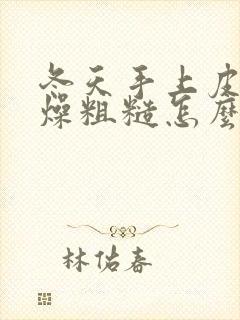 冬天手上皮
燥粗糙怎麼
林佑春